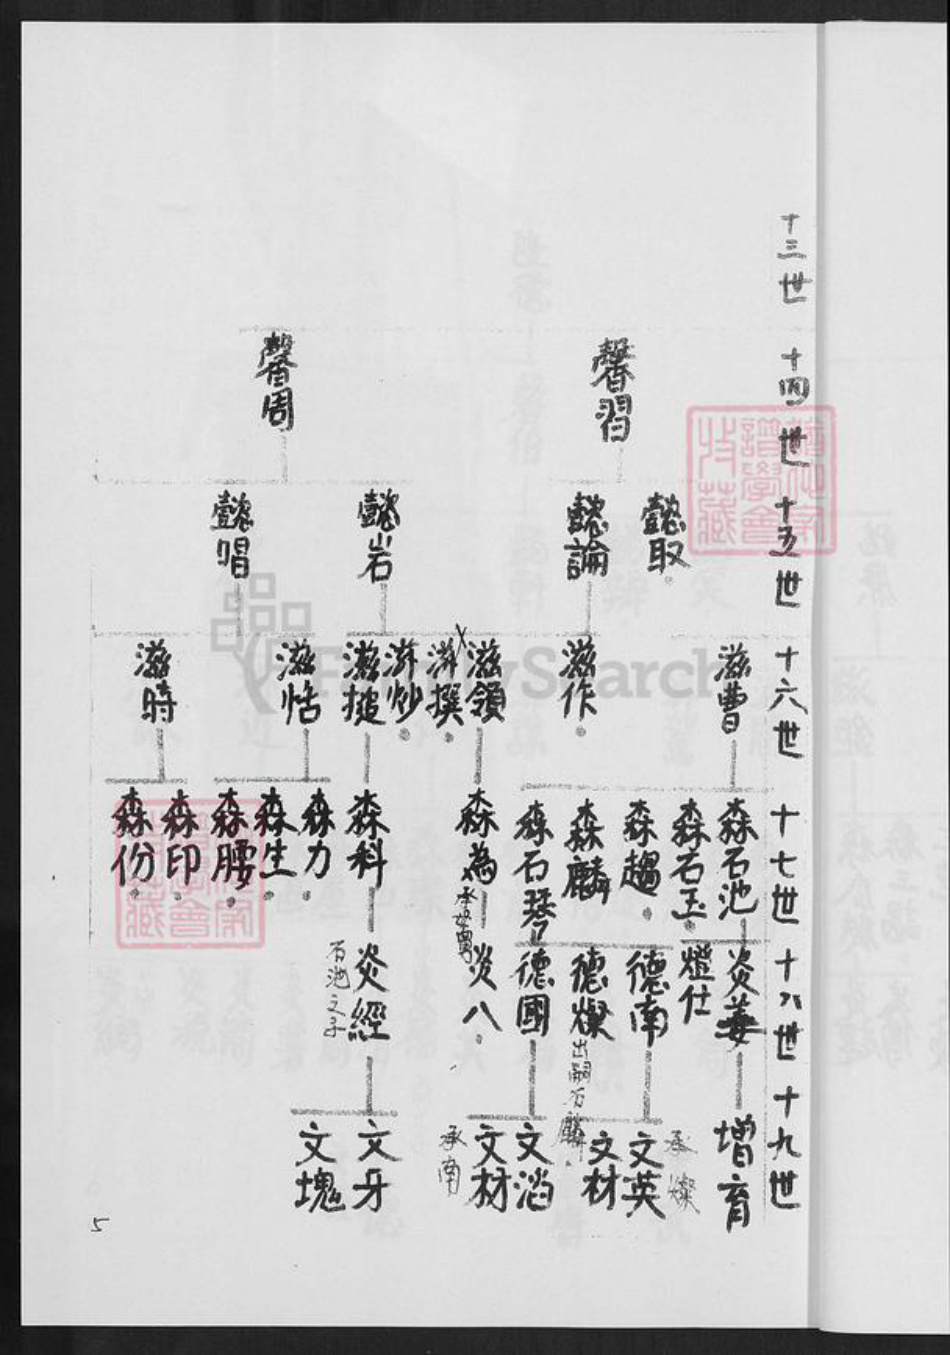 十三世
十四世
十五世
十六世
十七世
十八世
十九世
馨習
馨周
懿取
懿論
懿岩
懿唱
滋曹
滋作
滋領
滋撰
滋炒
滋搥
滋恬
滋時
森石池
森石玉
森趨
森麟
森石琴
森為
森科
森力
森生
森腰
森印
森份
炎華
燈仕
德南
德燦
出嗣石麟
德國
炎八
炎經
石池之子
增育
承燦
文英
文材
文滔
文材
承南
文牙
文塊
5
FamilySearch